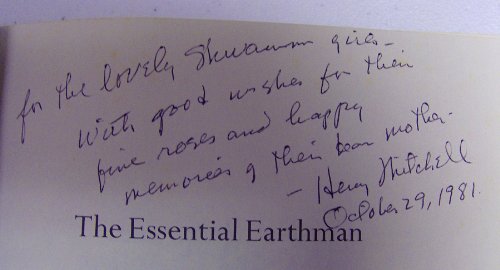 for the lovely girls —
With good wishes for their
fine roses and happy
memories of their dear mother.
— Henry Mitchell
October 29, 1981.
The Essential Earthman